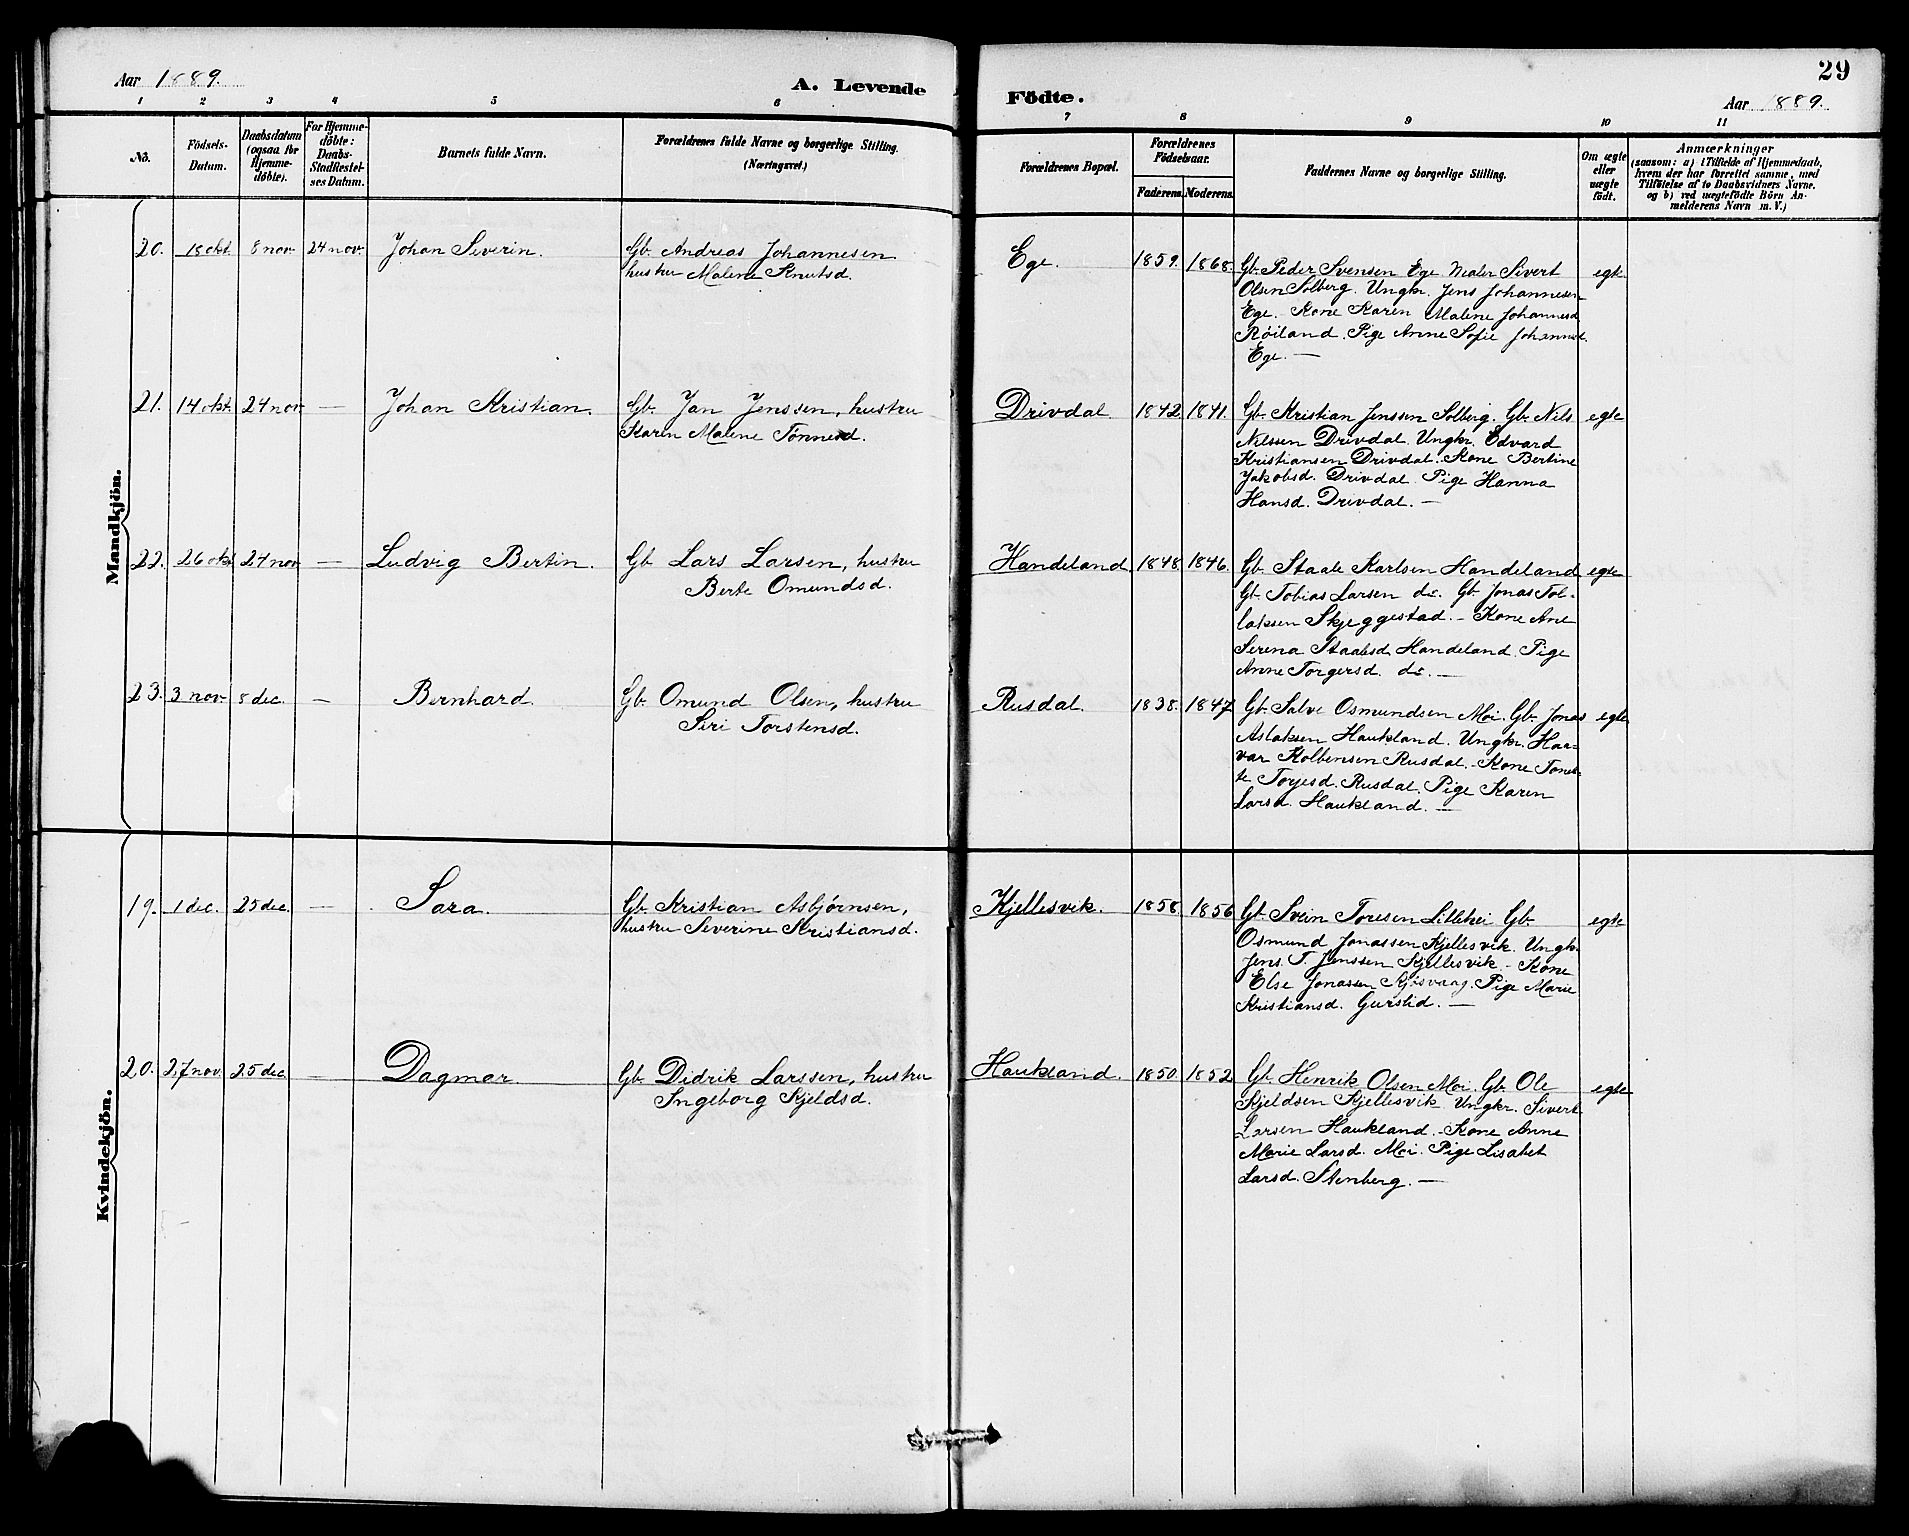 Aar 1889.
A. Levende
Födte.
29
Aar 1889.
1 2 3 4 5 6 7 8 9 10 11
No.
Födsels-Datum.
Daabsdatum (ogsaa for Hjemme-döbte).
For Hjemme-döbte: Daabs-Stadfæstel-ses Datum.
Barnets fulde Navn.
Forældrenes fulde Navne og borgerlige Stilling.
(Næringsvei.)
Forældrenes Bopæl.
Forældrenes Födselsaar.
Faderens. Moderens.
Faddernes Navne og borgerlige Stilling.
Om ægte eller uægte födt.
Anmærkninger
(saasom: a) i Tilfælde af Hjemmedaab,
hvem der har forrettet samme, med
Tilföielse af to Daabsvidners Navne,
og b) ved uægtefödte Börn An-
melderens Navn m. V.)
Mandkjön.
20. 18 okt. 8 nov. 24 nov. Johan Severin. Gb. Andreas Johannesen
hustru Malene Knutsd.
Ege. 1859. 1868. Gb. Peder Svensen Ege. Maler Sivert
Olsen Solberg. Ungkr. Jens Johannesen
Ege. Kone Karen Malene Johannesd.
Röiland. Pige Anne Sofie Johannesd.
Ege. —
egte
21. 14 okt. 24 nov. — Johan Kristian. Gb. Jan Jenssen, hustru
Karen Malene Tönnesd.
Drivdal 1842. 1841. Gb. Kristian Jenssen Solberg. Gb. Nils
Nilssen Drivdal. Ungkr. Edvard
Kristiansen Drivdal. Kone Bertine
Jakobsd. Drivdal. Pige Hanna
Hansd. Drivdal. —
egte
22. 26 okt. 24 nov. — Ludvig Bertin. Gb. Lars Larsen, hustru
Berte Omundsd.
Handeland. 1848. 1846. Gb. Staale Karlsen Handeland
Gb. Tobias Larsen do. Gb. Jonas Tol-
laksen Skjeggestad. – Kone Ane
Serena Staalesd. Handeland. Pige
Anne Torgersd. do. —
egte
23. 3 nov. 8 dec. — Bernhard. Gb. Omund Olsen, hustru
Siri Torstensd.
Rusdal. 1838. 1847. Gb. Salve Osmundsen Moi. Gb. Jonas
Aslaksen Haukland. Ungkr. Haa-
var Kolbensen Rusdal. – Kone Tonet-
te Torjesd. Rusdal. Pige Karen
Larsd. Haukland. —
egte
Kvindekjön.
19. 1 dec. 25 dec. — Sara. Gb. Kristian Asbjörnsen,
hustru Severine Kristiansd.
Kjellesvik. 1858. 1856. Gb. Svein Toresen Lillehei Gb.
Osmund Jonassen Kjellesvik. Ungkr.
Jens T. Jenssen Kjellesvik. – Kone
Else Jonassen Kjösvaag. Pige Marie
Kristiansd. Gurslid. —
egte
20. 27 nov. 25 dec. — Dagmar. Gb. Didrik Larssen, hustru
Ingeborg Kjeldsd.
Haukland. 1850. 1852. Gb. Henrik Olsen Moi. Gb. Ole
Kjeldsen Kjellesvik. Ungkr. Sivert
Larsen Haukland. – Kone Anne
Marie Larsd. Moi. Pige Lisabet
Larsd. Stenberg. —
egte